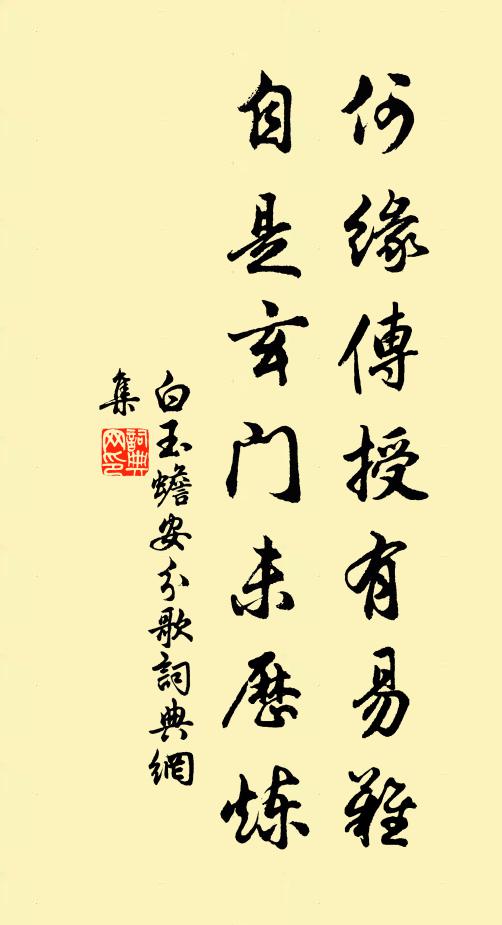 何緣傳授有易難
自是玄門未歷炼
白玉蟾安分歌詞典網
集
詞典网印